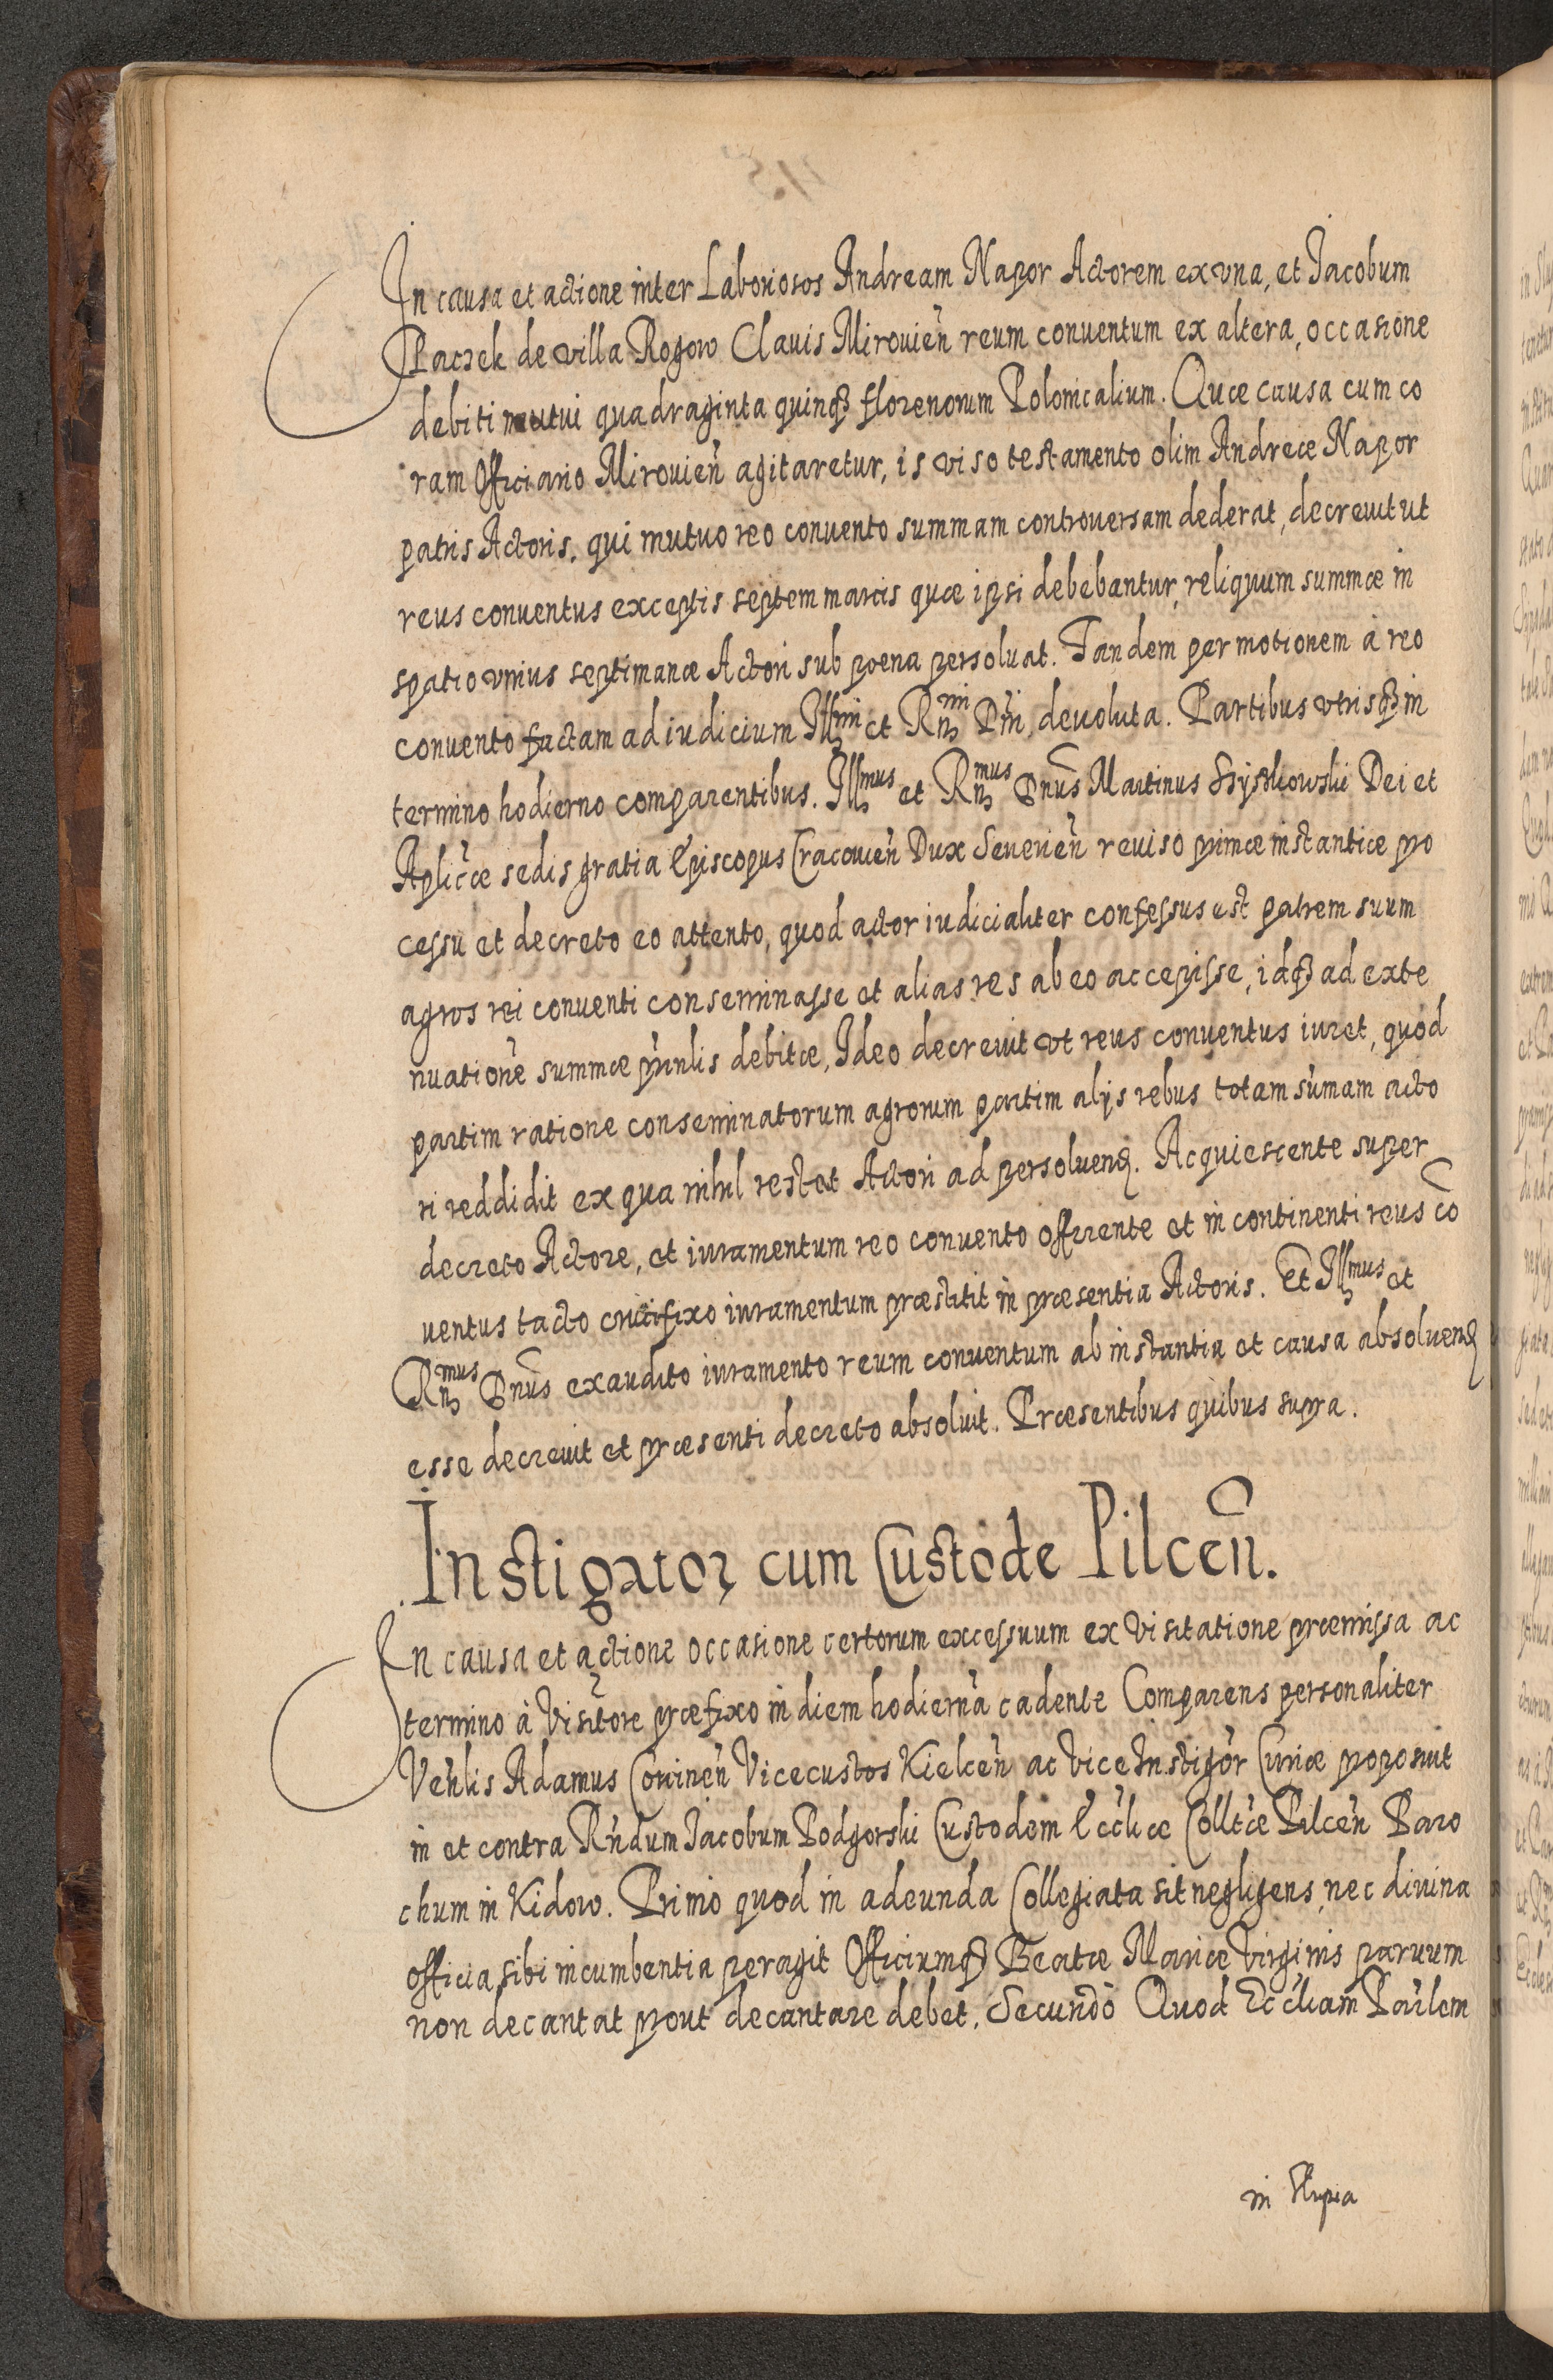 In causa et actione inter Laboriosos Andream Napor Actorem ex vna, et Jacobum
Paczek de villa Rogow Clauis Mirouien̄ reum conuentum ex altera, occasione
debiti mutui quadraginta quinqꝫ florenorum Polonicalium. Quæ causa cum co
ram Officiario Mirouien̄ agitaretur, is viso testamento olim Andreæ Napor
patris Actoris, qui mutuo reo conuento summam controuersam dederat, decreuit ut
reus conuentus exceptis septem marcis quæ ipsi debebantur, reliquum summæ in
spatio vnius septimanæ Actori sub poena persoluat. Tandem per motionem à reo
conuento factam ad iudicium Illmi et Rn̄mi Dn̄i, deuoluta. Partibus vtrisqꝫ in
termino hodierno comparentibus. Illmus et Rn̄mus Dnūs Martinus Szyszkowski Dei et
Aplicæ sedis gratia Episcopus Cracouien̄ Dux Seuerien̄ reuiso primæ instantiæ pro
cessu et decreto eo attento, quod actor iudicialiter confessus est patrem suum
agros rei conuenti conseminasse et alias res ab eo accepisse, idqꝫ ad exte
nuationē summæ prīnlis debitæ, Ideo decreuit vt reus conuentus iuret, quod
partim ratione conseminatorum agrorum partim alijs rebus totam sūmam acto
ri reddidit ex qua nihil restat Actori ad persoluend. Acquiescente super
decreto Actore, et iuramentum reo conuento offerente et in continenti reus cō
uentus tacto crucifixo iuramentum præstitit in præsentia Actoris. Et Illmus et
Rn̄mus Dnūs exaudito iuramento reum conuentum ab instantia et causa absoluend
esse decreuit et præsenti decreto absoluit. Præsentibus quibus supra.
Instigator cum Custode Pilcen̄.
In causa et actione occasione certorum excessuum ex Visitatione præmissa ac
termino à Visit̄ore præfixo in diem hodiernā cadente Comparens personaliter
Ven̄lis Adamus Corinen̄ Vicecustos Kielcen̄ ac Vice Instigōr Curiæ proposuit
in et contra Rn̄dum Jacobum Podgorski Custodem Ecc̄liæ Colltæ Pilcen̄ Paro
chum in Kidow. Primò quod in adeunda Collegiata sit negligens, nec diuina
officia sibi incumbentia peragit Officiumqꝫ Beatæ Mariæ Virginis paruum
non decantat prout decantare debet. Secundò Quod Ecc̄liam Parlem
in Slupia